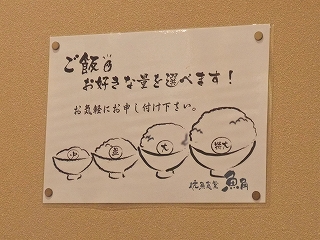 ご飯
お好きな量を選べます！
お気軽にお申し付け下さい。
小
大
特大